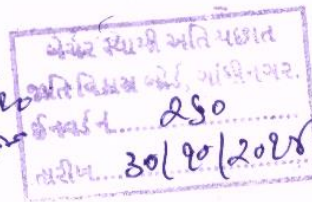 બેચર સ્વામી અતિ પછાત
જાતિ વિકાસ બોર્ડ, ગાંધીનગર.
ઈનવર્ડ નં.....૨૬૦
તારીખ....30/૧૦/૨૦૨૪